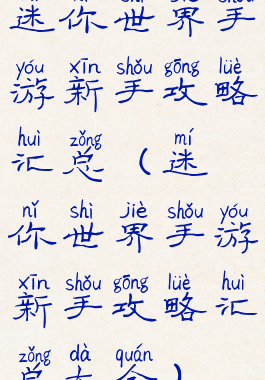 迷你世界手
yóu xīn shǒu gōng lüè
游新手攻略
huì zǒng mí
汇总（迷
nǐ shì jiè shǒu yóu
你世界手游
xīn shǒu gōng lüè huì
新手攻略汇
zǒng dà quán
总大全）